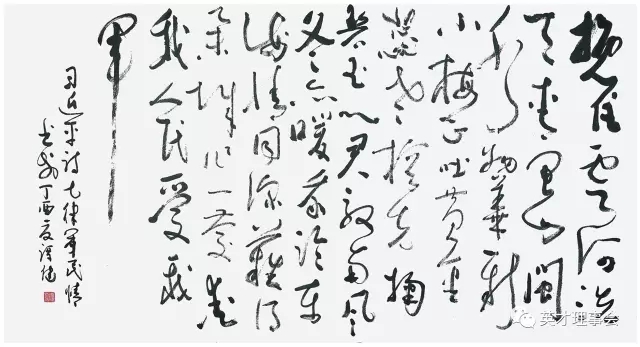 挽住云河洗
天青闽山闽
水物华新
小梅正吐黄金
蕊老榕先掬
碧玉心君驭南风
冬亦暖我临东
海情同深难得
举城作一庆爱
我人民爱我
军
习近平诗七律军民情
丁酉夏
英才理事会